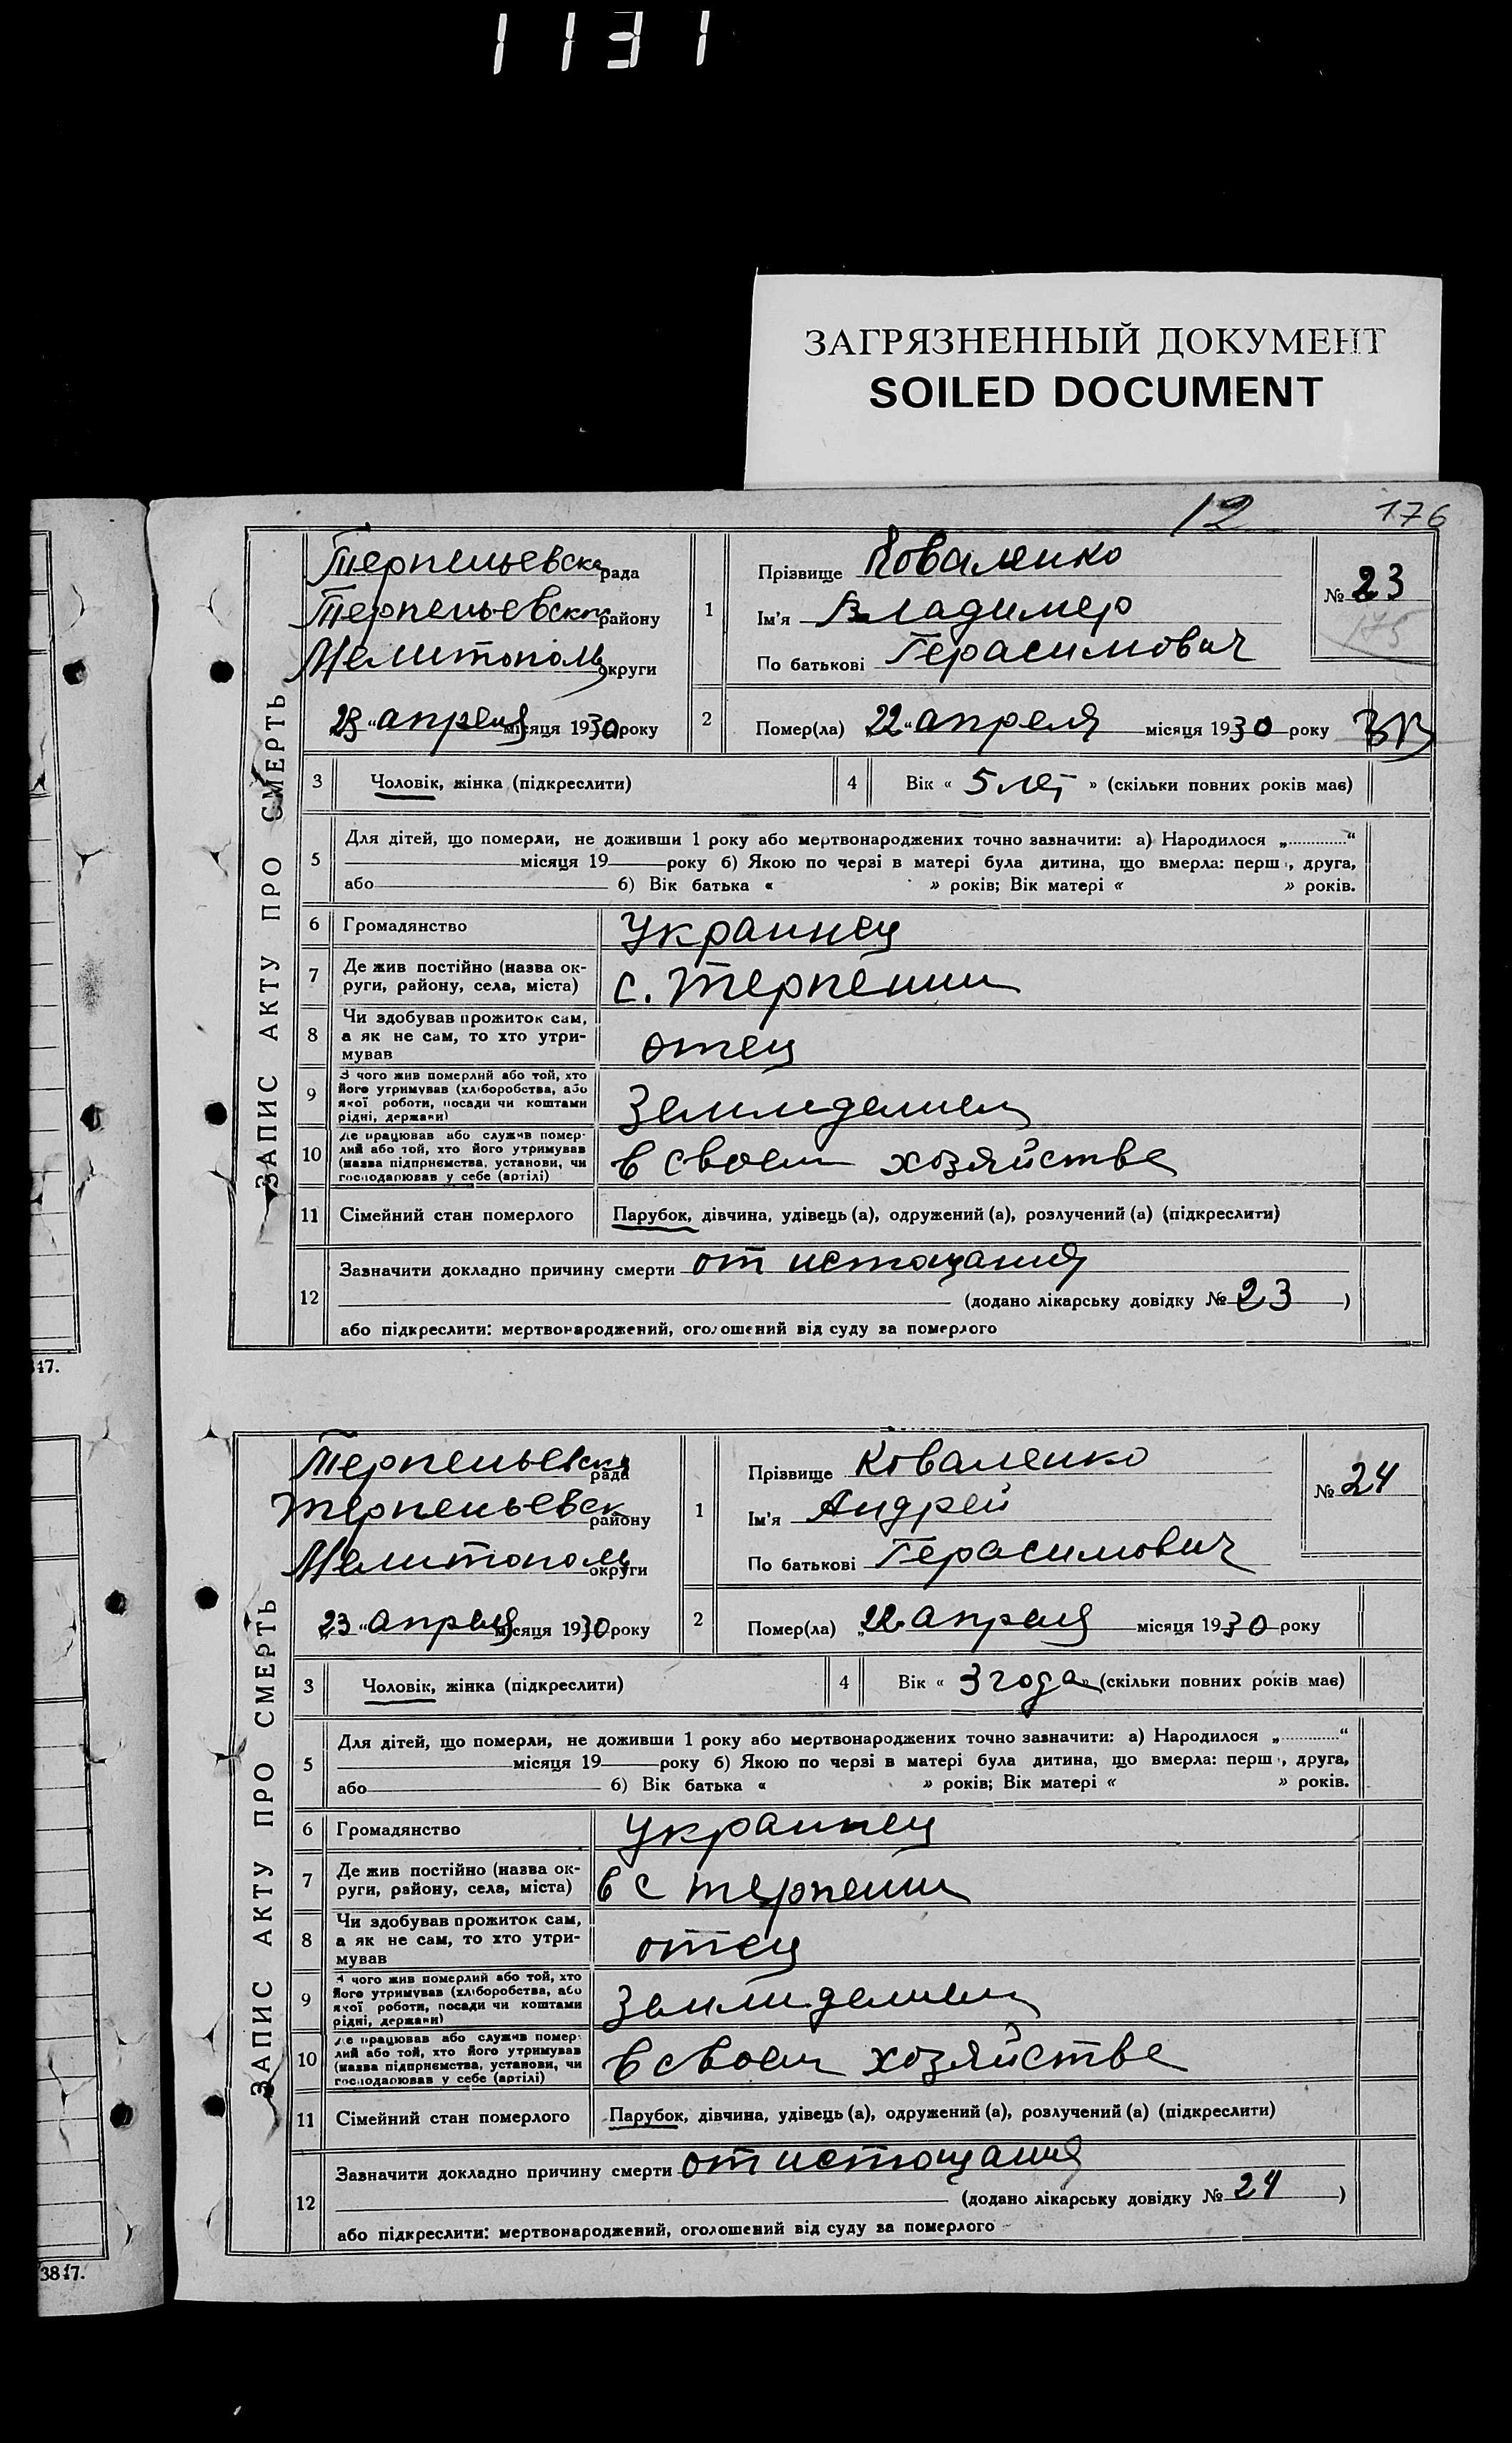 1131
ЗАГРЯЗНЕННЫЙ ДОКУМЕНТ
SOILED DOCUMENT
12 176
ЗАПИС АКТУ ПРО СМЕРТЬ
Терпеньевска рада
Терпеньевског району
Мелитополь округи
23 „ апреля місяця 1930 року
1
Прізвище Коваленко
Ім'я Владимер
По батькові Герасимович
№ 23
175
2 Помер(ла) „22“ апреля місяця 1930 року
3 Чоловік, жінка (підкреслити)
4 Вік « 5 лет » (скільки повних років має)
5 Для дітей, що померли, не доживши 1 року або мертвонароджених точно зазначити: а) Народилося „............“
місяця 19 року б) Якою по черзі в матері була дитина, що вмерла: перш , друга,
або б) Вік батька « » років; Вік матері « » років.
6 Громадянство Украинец
7 Де жив постійно (назва ок-
руги, району, села, міста) с. Терпении
8 Чи здобував прожиток сам,
а як не сам, то хто утри-
мував отец
9 З чого жив померлий або той, хто
його утримував (хліборобства, або
якої роботи, посади чи коштами
рідні, держави) Земледелием
10 Де працював або служив помер-
лий або той, хто його утримував
(назва підприємства, установи, чи
господарював у себе (артілі) в своем хозяйстве
11 Сімейний стан померлого Парубок, дівчина, удівець (а), одружений (а), розлучений (а) (підкреслити)
12 Зазначити докладно причину смерти от истощания
(додано лікарську довідку № 23 )
або підкреслити: мертвонароджений, оголошений від суду за померлого
347.
ЗАПИС АКТУ ПРО СМЕРТЬ
Терпеньевска рада
Терпеньевск району
Мелитополь округи
„23“ апреля місяця 1930 року
1
Прізвище Коваленко
Ім'я Андрей
По батькові Герасимович
№ 24
2 Помер(ла) „22“ апреля місяця 1930 року
3 Чоловік, жінка (підкреслити)
4 Вік « 3 года » (скільки повних років має)
5 Для дітей, що померли, не доживши 1 року або мертвонароджених точно зазначити: а) Народилося „............“
місяця 19 року б) Якою по черзі в матері була дитина, що вмерла: перш , друга,
або б) Вік батька « » років; Вік матері « » років.
6 Громадянство Украинец
7 Де жив постійно (назва ок-
руги, району, села, міста) в с Терпении
8 Чи здобував прожиток сам,
а як не сам, то хто утри-
мував отец
9 З чого жив померлий або той, хто
його утримував (хліборобства, або
якої роботи, посади чи коштами
рідні, держави) Земледелием
10 Де працював або служив помер-
лий або той, хто його утримував
(назва підприємства, установи, чи
господарював у себе (артілі) в своем хозяйстве
11 Сімейний стан померлого Парубок, дівчина, удівець (а), одружений (а), розлучений (а) (підкреслити)
12 Зазначити докладно причину смерти от истощания
(додано лікарську довідку № 24 )
або підкреслити: мертвонароджений, оголошений від суду за померлого
3847.